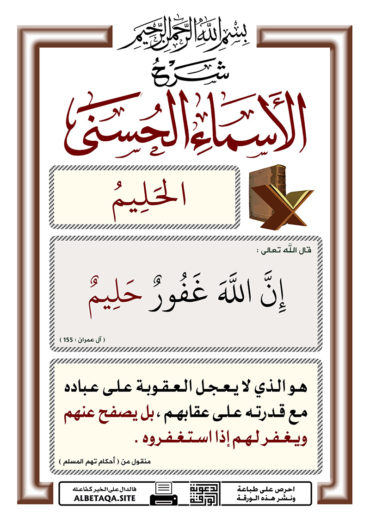 بسم الله الرحمن الرحيم
شرح
الأسماء الحسنى
الحَلِيمُ
قال الله تعالى :
إِنَّ اللَّهَ غَفُورٌ حَلِيمٌ
( آل عمران : 155 )
هو الذي لا يعجل العقوبة على عباده
مع قدرته على عقابهم ، بل يصفح عنهم
ويغفر لهم إذا استغفروه .
منقول من ( أحكام تهم المسلم )
احرص على طباعة
ونشر هذه الورقة
فالدال على الخير كفاعله
ALBETAQA.SITE